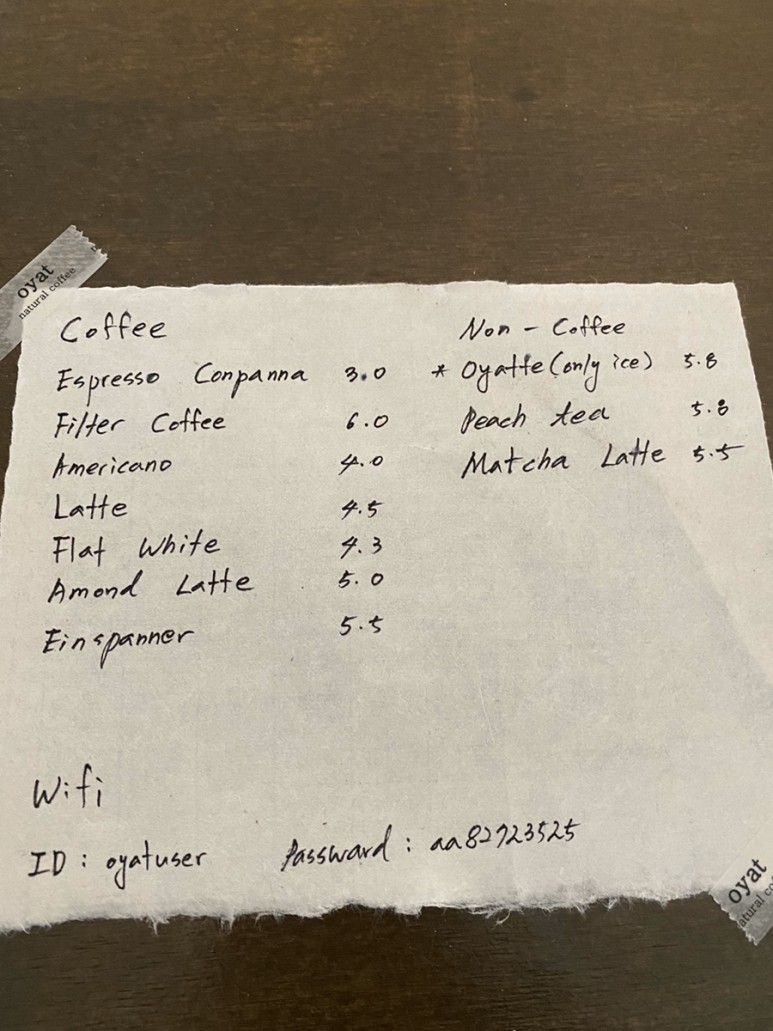 oyat
natural coffee
Coffee
Espresso Conpanna 3.0
Filter Coffee 6.0
Americano 4.0
Latte 4.5
Flat White 4.3
Amond Latte 5.0
Einspanner 5.5
Non - Coffee
* Oyatte (only ice) 5.8
Peach tea 5.8
Matcha Latte 5.5
Wifi
ID : oyatuser Passward : aa82723525
oyat